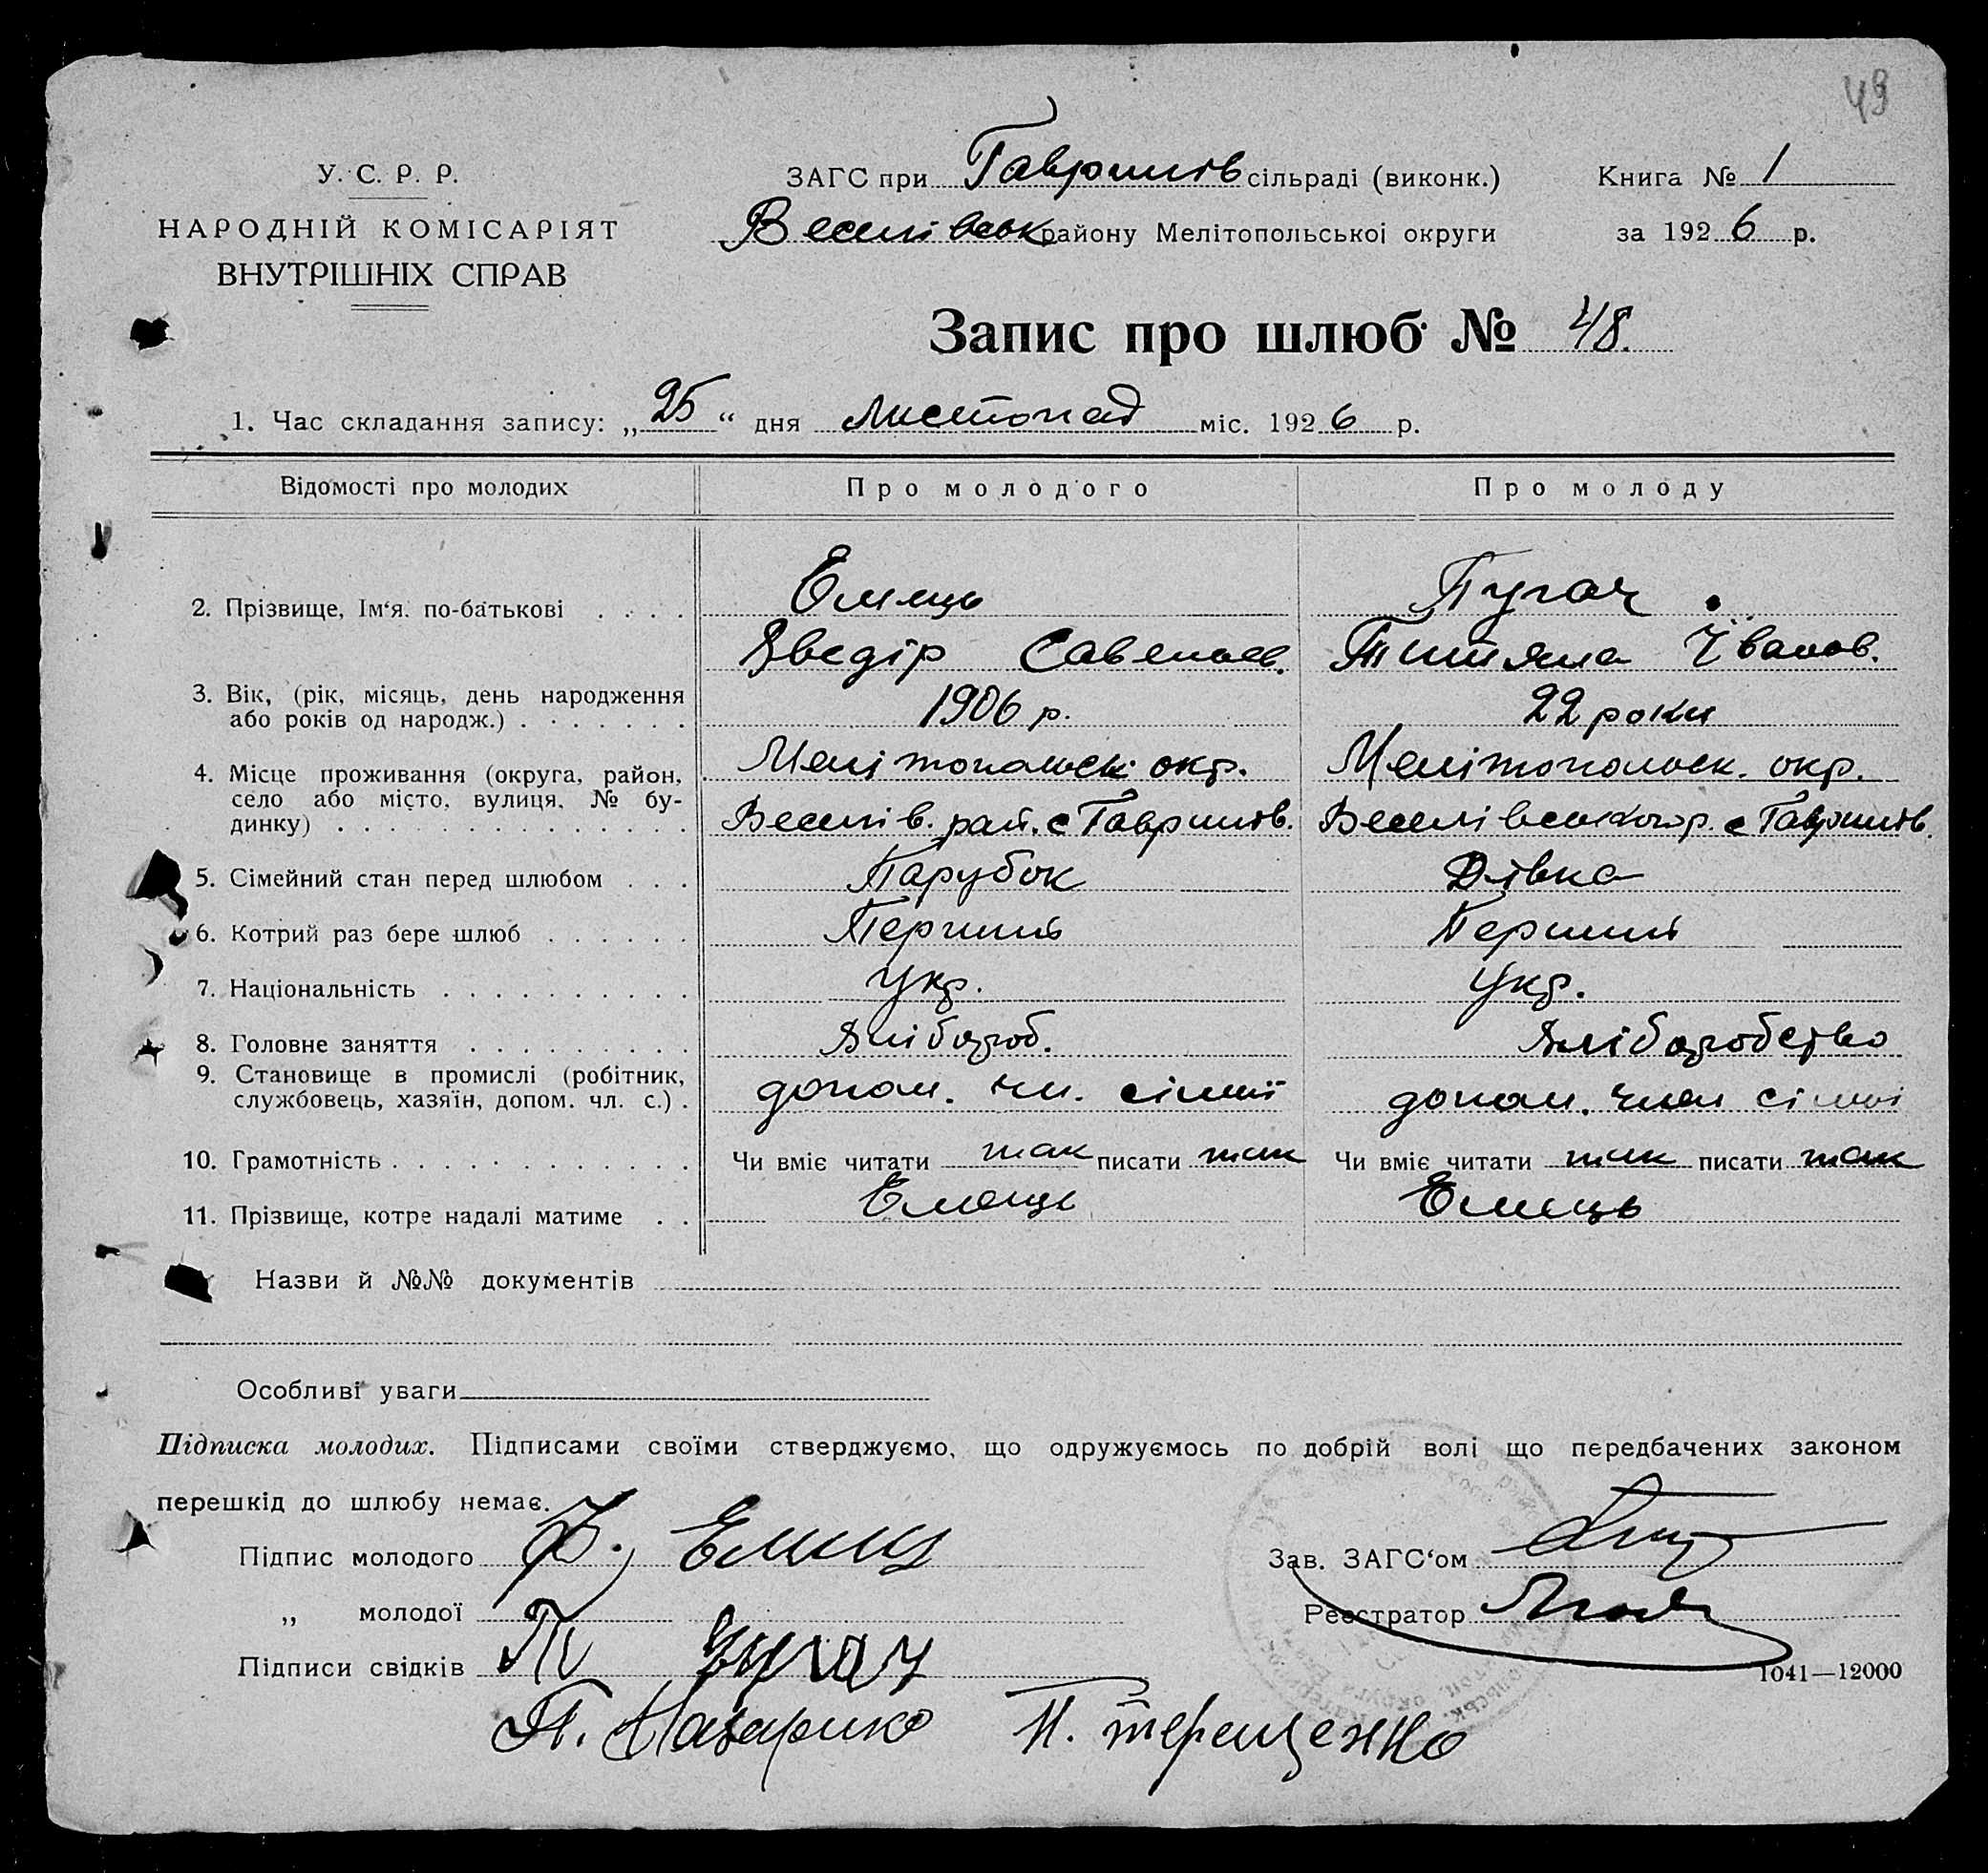 49
У. С. Р. Р.
НАРОДНІЙ КОМІСАРІЯТ
ВНУТРІШНІХ СПРАВ
ЗАГС при Гаврилів сільраді (виконк.)
Веселівськ району Мелітопольської округи
Книга № 1
за 1926 р.
Запис про шлюб № 48.
1. Час складання запису: „25“ дня листопад міс. 1926 р.
Відомості про молодих Про молодого Про молоду
2. Прізвище, Ім'я. по-батькові Емець Пугач
Хведір Савельев. Титяна Іванов.
3. Вік, (рік, місяць, день народження
або років од народж.) 1906 р. 22 роки
4. Місце проживання (округа, район, Мелітопольськ окр. Мелітопольськ. окр.
село або місто, вулиця, № бу-
динку) Веселів. рай. с Гаврилів. Веселівського р. с Гаврилів.
5. Сімейний стан перед шлюбом Парубок Дівка
6. Котрий раз бере шлюб Перший Перший
7. Національність Укр. Укр.
8. Головне заняття Хлібороб. Хліборобство
9. Становище в промислі (робітник,
службовець, хазяїн, допом. чл. с.) допом. чл. сімії допом. член сімії
10. Грамотність Чи вміє читати так писати так Чи вміє читати так писати так
11. Прізвище, котре надалі матиме Емець Емець
Назви й №№ документів
Особливі уваги
Підписка молодих. Підписами своїми стверджуємо, що одружуємось по добрій волі що передбачених законом
перешкід до шлюбу немає.
Підпис молодого Ф. Емиц
Зав. ЗАГС'ом
„ молодої
Реєстратор
Підписи свідків Пугач
1041—12000
П. Назарико П. терещенко